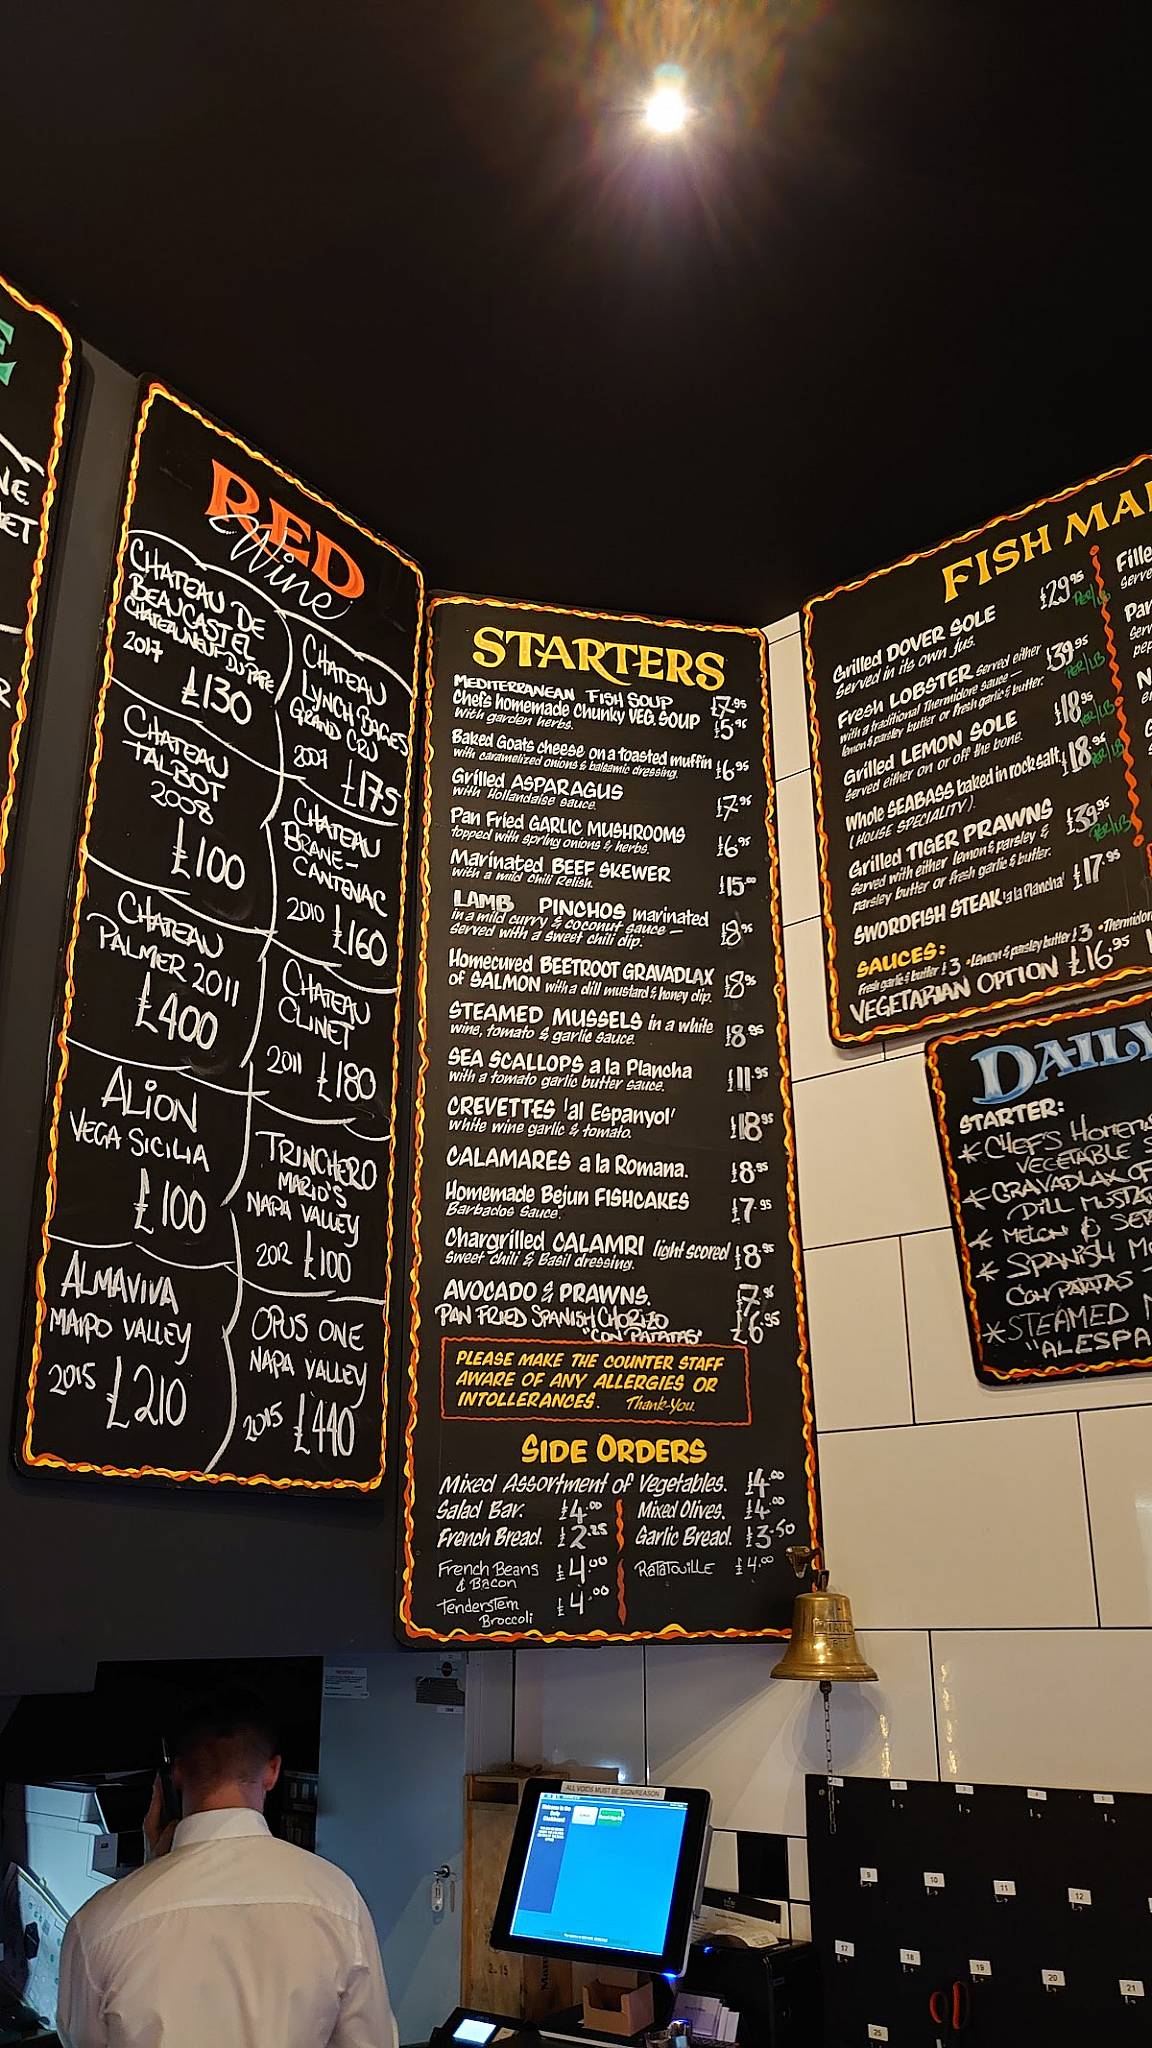 RED
Wine
CHATEAU DE
BEAUCASTEL
CHATEAUNEUF-DU-PAPE
2017
£130
CHATEAU
LYNCH BAGES
GRAND CRU
2007
£175
CHATEAU
TALBOT
2008
£100
CHATEAU
BRANE-
CANTENAC
2010 £160
CHATEAU
PALMER 2011
£400
CHATEAU
CLINET
2011 £180
ALION
VEGA SICILIA
£100
TRINCHERO
MARIO'S
NAPA VALLEY
2012 £100
ALMAVIVA
MAIPO VALLEY
2015 £210
OPUS ONE
NAPA VALLEY
2015 £440
STARTERS
MEDITERRANEAN FISH SOUP £7.95
Chefs homemade chunky VEG. SOUP £5.95
with garden herbs.
Baked Goats cheese on a toasted muffin
with caramelized onions & balsamic dressing. £6.95
Grilled ASPARAGUS
with Hollandaise sauce. £7.95
Pan Fried GARLIC MUSHROOMS
topped with spring onions & herbs. £6.95
Marinated BEEF SKEWER
with a mild chili Relish. £15.00
LAMB PINCHOS marinated
in a mild curry & coconut sauce — £8.95
served with a sweet chili dip.
Homecured BEETROOT GRAVADLAX
of SALMON with a dill mustard & honey dip. £8.95
STEAMED MUSSELS in a white
wine, tomato & garlic sauce. £8.95
SEA SCALLOPS a la Plancha
with a tomato garlic butter sauce. £11.95
CREVETTES 'al Espanyol'
white wine garlic & tomato. £18.95
CALAMARES a la Romana. £8.95
Homemade Bejun FISHCAKES
Barbados Sauce. £7.95
Chargrilled CALAMRI light scored
Sweet chili & Basil dressing. £8.95
AVOCADO & PRAWNS. £7.95
PAN FRIED SPANISH CHORIZO
"CON PATATAS" £6.95
PLEASE MAKE THE COUNTER STAFF
AWARE OF ANY ALLERGIES OR
INTOLLERANCES. Thank-You.
SIDE ORDERS
Mixed Assortment of Vegetables. £4.00
Salad Bar. £4.00
French Bread. £2.25
French Beans
& Bacon £4.00
Tenderstem
Broccoli £4.00
Mixed Olives. £4.00
Garlic Bread. £3.50
RATATOUILLE £4.00
FISH MA
Grilled DOVER SOLE £29.95
Served in its own jus. PER/LB
Fresh LOBSTER served either £39.95
with a traditional Thermidore sauce — PER/LB
lemon & parsley butter or fresh garlic & butter.
Grilled LEMON SOLE £18.95
Served either on or off the bone. PER/LB
Whole SEABASS baked in rock salt. £18.95
(HOUSE SPECIALITY). PER/LB
Grilled TIGER PRAWNS £39.95
Served with either lemon & parsley & PER/LB
parsley butter or fresh garlic & butter.
SWORDFISH STEAK 'a la Plancha' £17.95
SAUCES:
Fresh garlic & butter £3 • Lemon & parsley butter £3 • Thermidor
VEGETARIAN OPTION £16.95
DAILY
STARTER:
* CHEF'S
VEGETABLE
* GRAVADLAX OF
DILL
* MELON &
* SPANISH
CON PATATAS
* STEAMED
"ALESPA
ALL VOIDS MUST BE SIGN/REASON
9
10
11
12
17
18
19
20
21
25